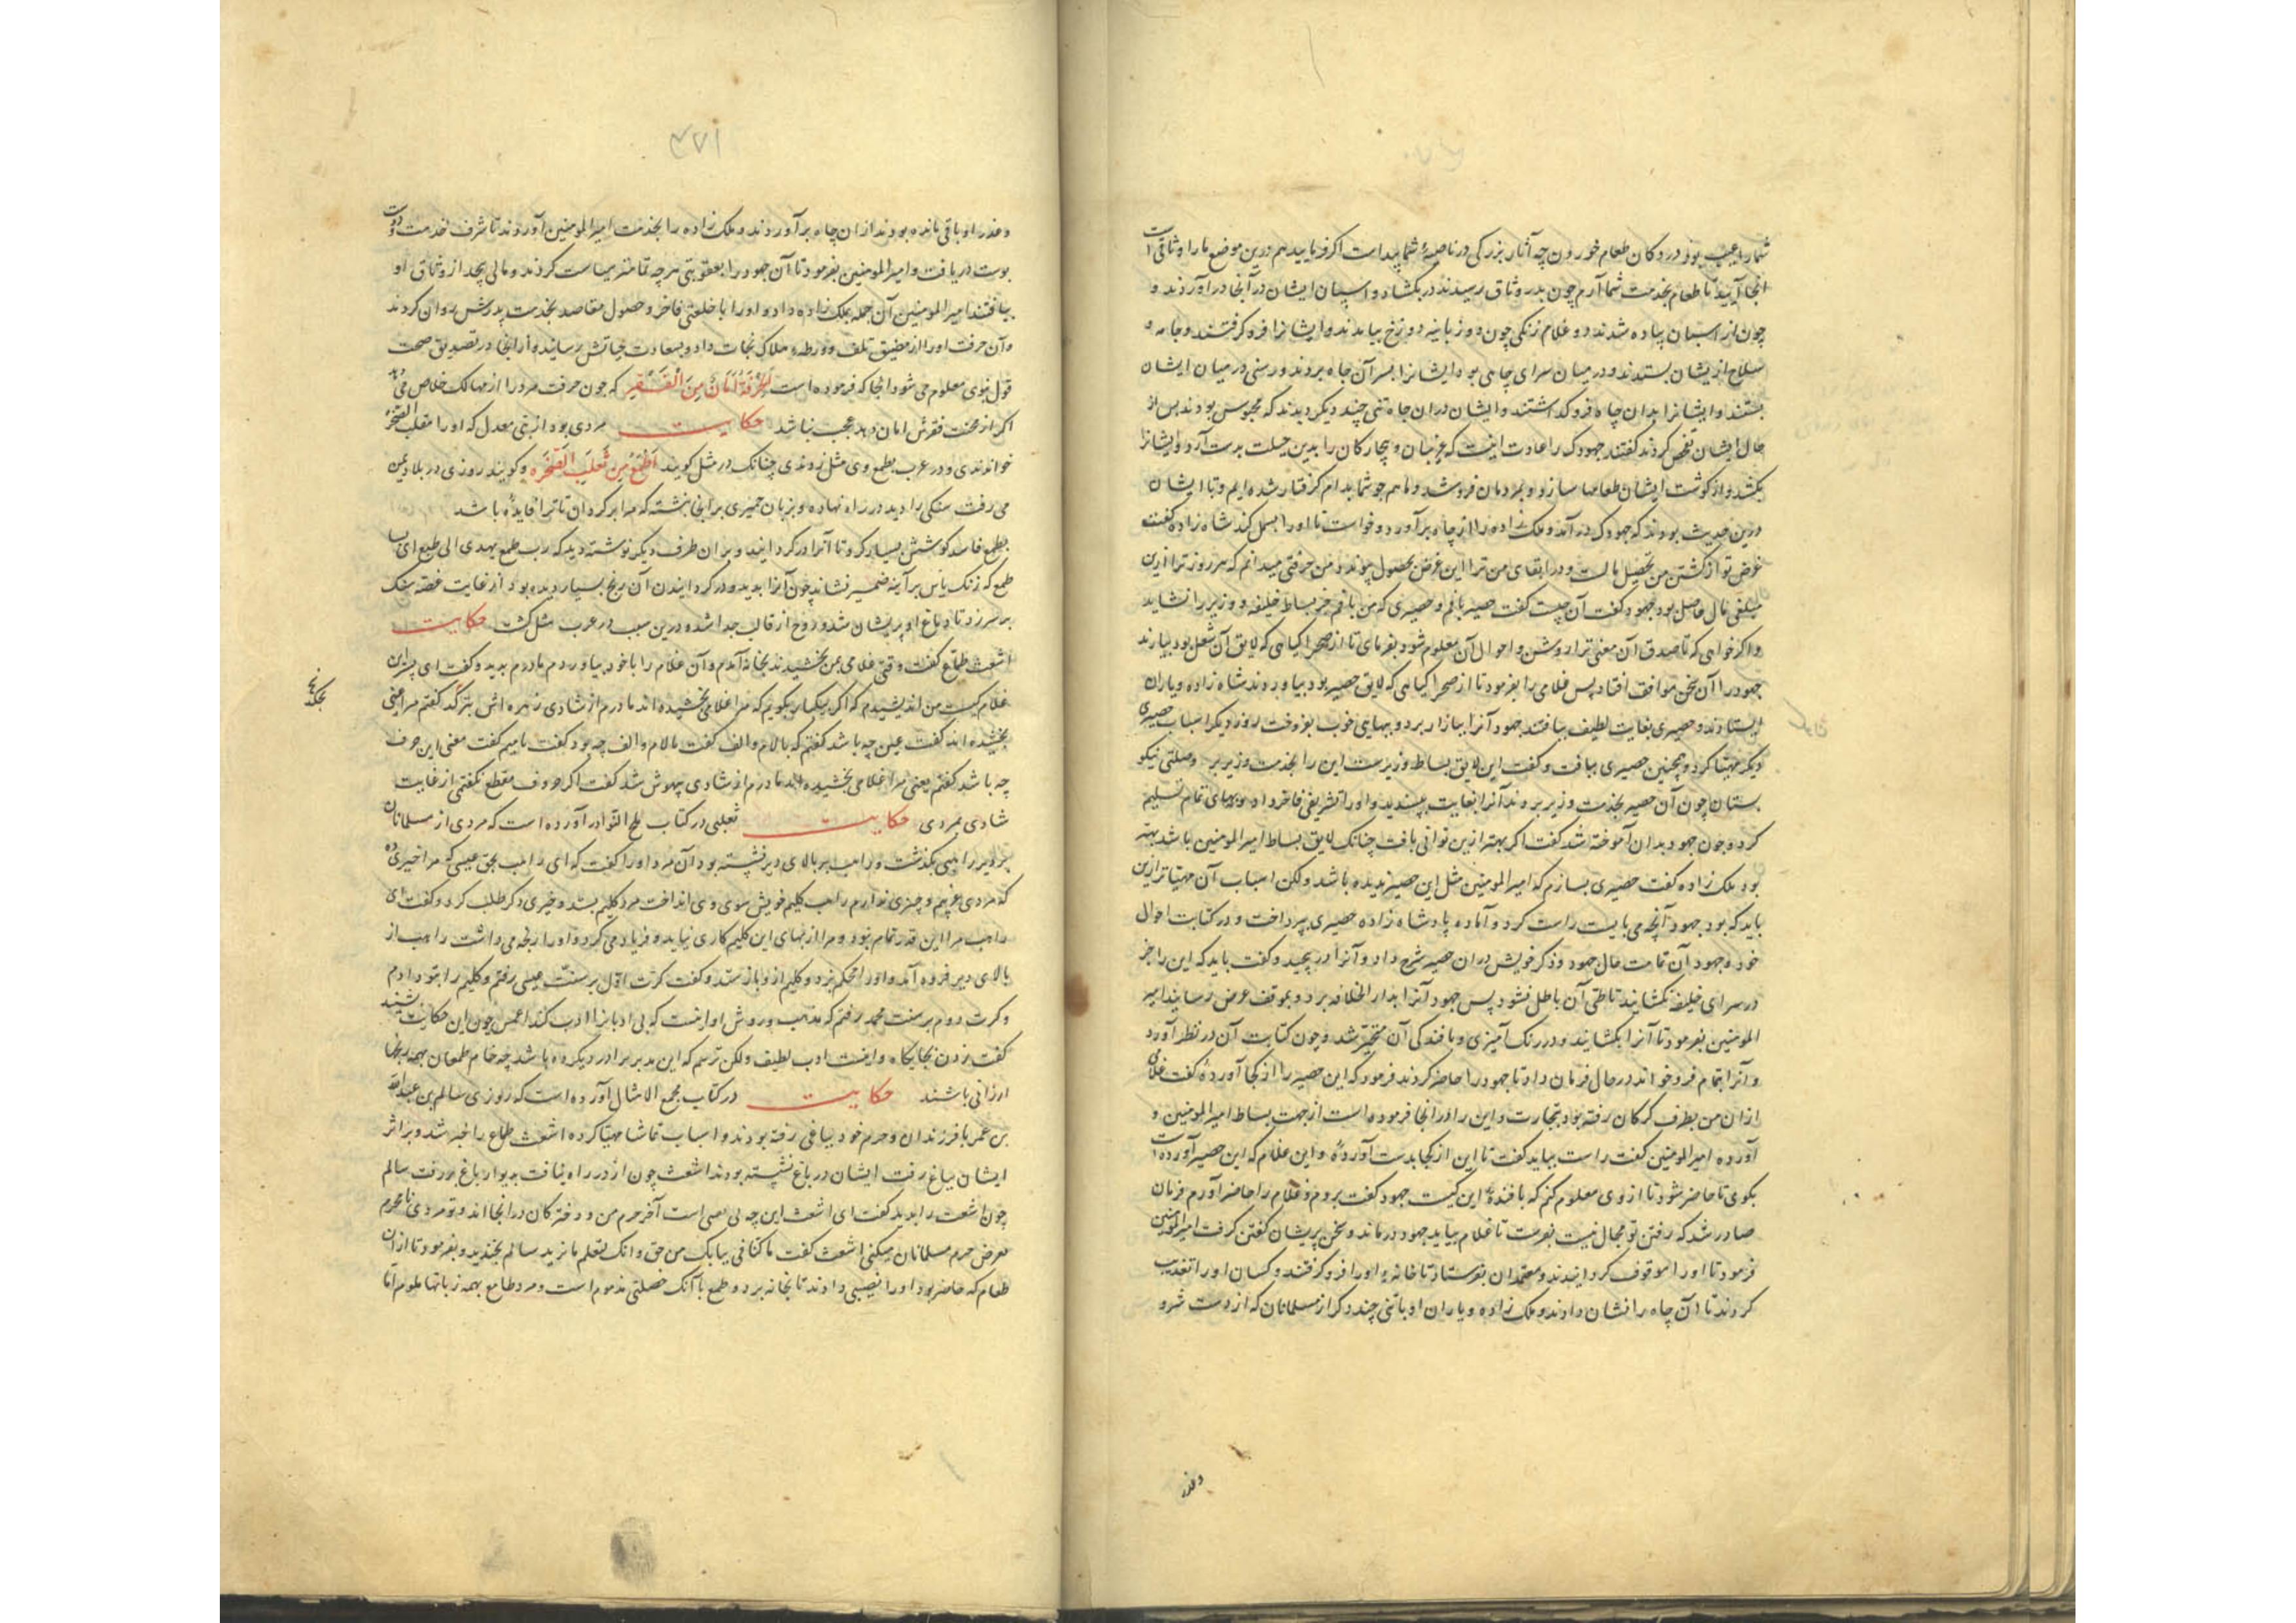 شما را عیب بود در دکان طعام خوردن چه آثار بزرگی در ناصیهٔ شما پیداست اکر فرمایید هم درین موضع ما را وثاقی است
انجا آیید تا طعام بخدمت شما آرم چون بدر وثاق رسیدند در بکشاد و اسپان ایشان در آنجا در آوردند و
چون از اسبان پیاده شدند دو غلام زنکی چون دو زبانیه دوزخ بیامدند و ایشانرا فرو کرفتند و جامه و
سلاح از یشان بستدند و در میان سرای چاهی بود ایشانرا بسر آن چاه بردند و رسنی در میان ایشان
بستند و ایشانرا بدان چاه فرو کذاشتند و ایشان دران چاه تنی چند دیکر دیدند که محبوس بودند پس از
حال ایشان تفحص کردند کفتند جهودک را عادت اینست که غریبان و بیچارکان را بدین حیلت بدست آرد و ایشانرا
بکشد و از کوشت ایشان طعامها سازد و بمردمان فروشد و ما هم چو شما بدام کرفتار شده ایم و تا ایشان
درین حدیث بودند که جهودک در آمد و ملک زاده را از چاه بر آورد و خواست تا او را بسمل کند شاه زاده کفت
غرض تو از کشتن من تحصیل مالست و در ابقای من ترا این غرض بحصول پیوندد من حرفتی میدانم که هر روز ترا ازین
مبلغی مال حاصل بود جهود کفت آن چیست کفت حصیر بافم و حصیری که من بافم جز بساط خلیفه و وزیر را نشاید
و اکر خواهی که تا صدق آن معنی ترا روشن و احوال آن معلوم شود بفرمای تا از صحرا کیاهی که لایق آن شغل بود بیارند
جهود را آن سخن موافق افتاد پس غلامی را بفرمود تا از صحرا کیاهی که لایق حصیر بود بیاوردند شاه زاده و یاران
ایستادند و حصیری بغایت لطیف ببافتند جهود آنرا ببازار برد و ببهایی خوب بفروخت روز دیکر اسباب حصیری
دیکر مهیا کرد و همچنین حصیری ببافت و کفت این لایق بساط وزیرست این را بخدمت وزیر بر و صلتی نیکو
بستان چون آن حصیر بخدمت وزیر بردند آنرا بغایت بپسندید و او را تشریفی فاخر داد و بهای تمام تسلیم
کرد و چون جهود بدان آموخته شد کفت اکر بهتر ازین توانی بافت چنانک لایق بساط امیر المومنین باشد بهتر
بود ملک زاده کفت حصیری بسازم که امیر المومنین مثل این حصیر ندیده باشد ولکن اسباب آن مهیاتر ازین
باید که بود جهود آنچه می بایست راست کرد و آماده پادشاه زاده حصیری بپرداخت و در کتابت احوال
خود و جهود آن تمامت حال جهود و ذکر خویش دران حصیر شرح داد و آنرا در پیچید و کفت باید که این را جز
در سرای خلیفه نکشایند تا طی آن باطل نشود پس جهود آنرا بدار الخلافه برد و بموقف عرض رسانید امیر
المومنین بفرمود تا آنرا بکشایند و در رنک آمیزی و بافندکی آن متحیر شد و چون کتابت آن در نظر آورد
و آنرا بتمام فرو خواند در حال فرمان داد تا جهود را حاضر کردند فرمود که این حصیر را از کجا آوردهٔ کفت غلامی
ازان من بطرف کرکان رفته بود بتجارت و این را در انجا فرموده است از جهت بساط امیر المومنین و
آورده امیر المومنین کفت راست بباید کفت تا این از کجا بدست آوردهٔ و این غلام که این حصیر آورده است
بکوی تا حاضر شود تا از وی معلوم کنم که بافندهٔ این کیست جهود کفت بروم و غلام را حاضر آورم فرمان
صادر شد که رفتن تو مجال نیست بفرست تا غلام بیاید جهود درماند و سخن پریشان کفتن کرفت امیر المومنین
فرمود تا او را موقوف کردانیدند و معتمدان بفرستاد تا خانهٔ او را فرو کرفتند و کسان او را تعذیب
کردند تا آن چاه را نشان دادند و ملک زاده و یاران او با تنی چند دکر از مسلمانان که از دست شر و
و غدر
۳۷۱
و غدر او باقی مانده بودند ازان چاه بر آوردند و ملک زاده را بخدمت امیر المومنین آوردند تا شرف خدمت و دست
بوس دریافت و امیر المومنین بفرمود تا آن جهود را بعقوبتی هر چه تمامتر سیاست کردند و مالی بیحد از وثاق او
بیافتند امیر المومنین آن جمله بملک زاده داد و او را با خلعتی فاخر و حصول مقاصد بخدمت پدرش روان کردند
و آن حرفت او را از مضیق تلف و ورطهٔ هلاک نجات داد و بسعادت حیاتش رسانید و از اینجا در تصدیق صحت
قول نبوی معلوم می شود انجا که فرموده است اَلْحِرْفَةُ اَمَانٌ مِنَ الْفَقْرِ که چون حرفت مرد را از مهالک خلاص می دهد
اکر از محنت فقرش امان دهد عجب نباشد حکایت مردی بود از بنی معدل که او را مقلب الصخره
خواندندی و در عرب بطمع وی مثل زدندی چنانک در مثل کویند اَطْمَعُ مِنْ مُقَلِّبِ الصَّخْرَه و کویند روزی در بلاد یمن
می رفت سنکی را دید در راه نهاده و بزبان حمیری بر انجا نبشته که مرا بر کردان تا ترا فایده باشد
بطمع فاسد کوشش بسیار کرد تا آنرا در کردانید و بران طرف دیکر نوشته دید که رب طمع یهدی الی طبع ای بسا
طمع که زنک یاس بر آینه ضمیر نشاند چون آنرا بدید و در کردانیدن آن رنج بسیار دیده بود از غایت غصه سنک
بر سر زد تا دماغ او پریشان شد و روح از قالب جدا شد و درین سبب در عرب مثل کشت حکایت
اشعث طماع کفت وقتی غلامی بمن بخشیدند بخانه آمدم و آن غلام را با خود بیاوردم مادرم بدید و کفت ای پسر این
غلام کیست من اندیشیدم که اکر بیکبار بکویم که مرا غلامی بخشیده اند مادرم از شادی زهره اش بترکد کفتم مرا عینی
بخشیده اند کفت عین چه باشد کفتم که بالام و الف کفت بالام و الف چه بود کفت با میم کفت معنی این حرف
چه باشد کفتم یعنی مرا غلامی بخشیده اند مادرم از شادی بیهوش شد کفت اکر حروف مقطع نکفتمی از غایت
شادی بمردی حکایت ثعلبی در کتاب ملح النوادر آورده است که مردی از مسلمانان
بر دیر راهبی بکذشت و راهب بر بالای دیر نشسته بود آن مرد او را کفت که ای راهب بحق عیسی که مرا خیری ده
که مردی غریبم و چیزی ندارم راهب کلیم خویش سوی وی انداخت مرد کلیم بستد و خیری دکر طلب کرد و کفت ای
راهب مرا این قدر تمام نبود و مرا از بهای این کلیم کاری نیاید و فریاد می کرد و او را رنجه می داشت راهب از
بالای دیر فرود آمد و او را محکم بزد و کلیم از و بازستد و کفت کرت اول بر سنت عیسی رفتم و کلیم را بتو دادم
و کرت دوم بر سنت محمد رفتم که مذهب و روش او اینست که بی ادبانرا ادب کند اعمش چون این حکایت بشنید
کفت زدن بجایکاه و اینست ادب لطیف ولکن ترسم که این مدبر برادر دیکر ده باشد چه خام طمعان بهمه رنجها
ارزانی باشند حکایت در کتاب مجمع الامثال آورده است که روزی سالم بن عبد الله
بن عمر با فرزندان و حرم خود بباغی رفته بودند و اسباب تماشا مهیا کرده اشعث طماع را خبر شد و بر اثر
ایشان بباغ رفت ایشان در باغ نشسته بودند اشعث چون از در راه نیافت بدیوار باغ بر رفت سالم
چون اشعث را بدید کفت ای اشعث این چه بی است آخر حرم من و دخترکان در انجا اند و تو مردی نامحرم
تعرض حرم مسلمانان میکنی اشعث کفت ما لنا فی بناتک من حق و انک لتعلم ما نرید سالم بخندید و بفرمود تا ازان
طعام که حاضر بود او را نصیبی دادند تا بخانه برد و طمع با آنک خصلتی مذموم است و مرد طامع بهمه زبانها ملوم اما